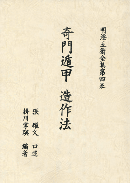 明澄五術全集第四巻
奇門遁甲 造作法
張耀文 口述
掛川掌瑛 編著